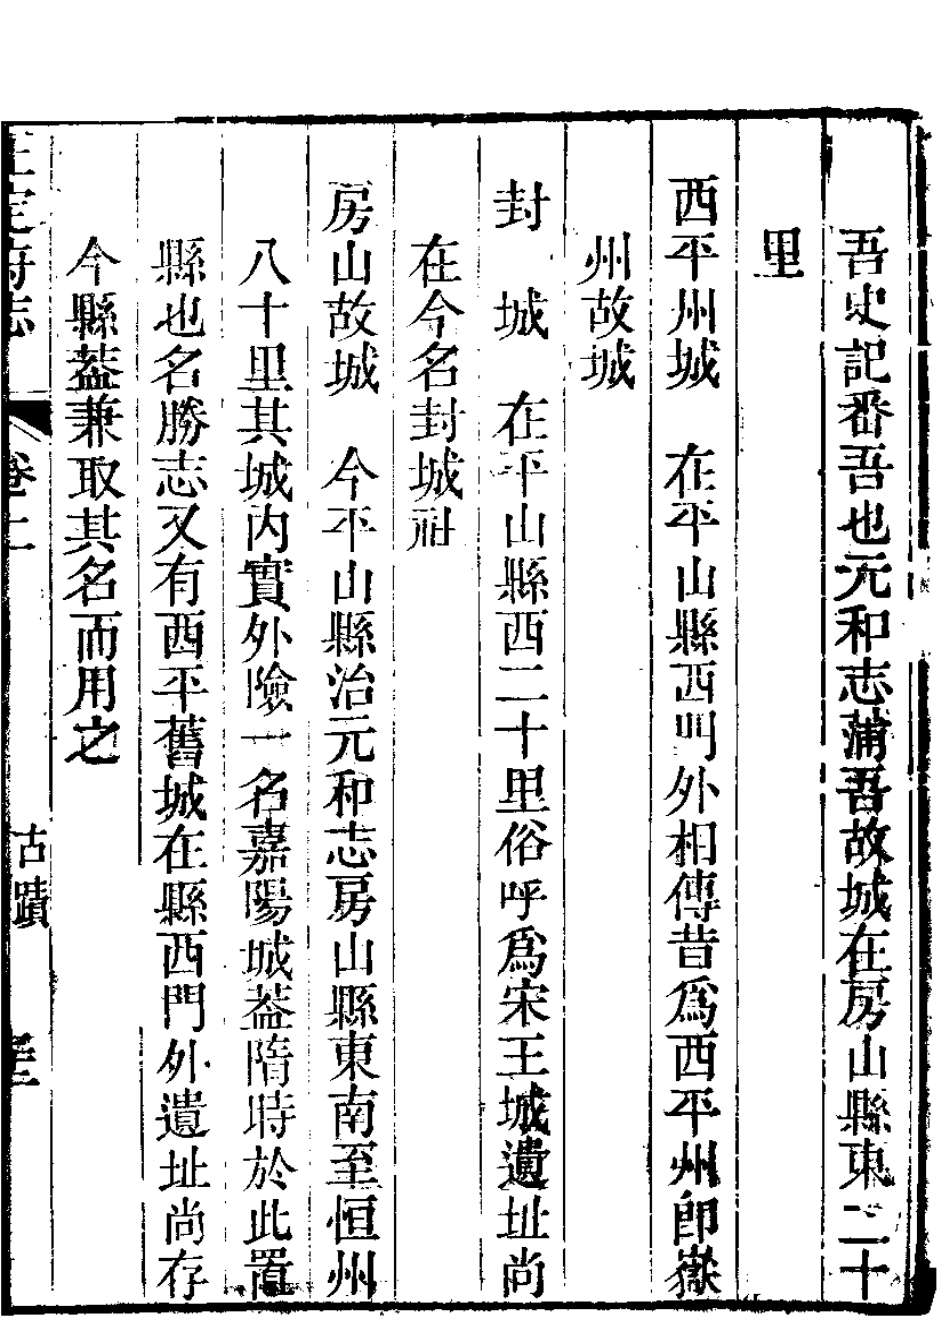 吾史記番吾也元和志蒲吾故城在房山縣東二十
里
西平州城　在平山縣西門外相傳昔爲西平州卽嶽
州故城
封　城　在平山縣西二十里俗呼爲宋王城遺址尚
在今名封城社
房山故城　今平山縣治元和志房山縣東南至恒州
八十里其城内實外險一名嘉陽城葢隋時於此置
縣也名勝志又有西平舊城在縣西門外遺址尚存
今縣葢兼取其名而用之
正定府志　卷二　古蹟